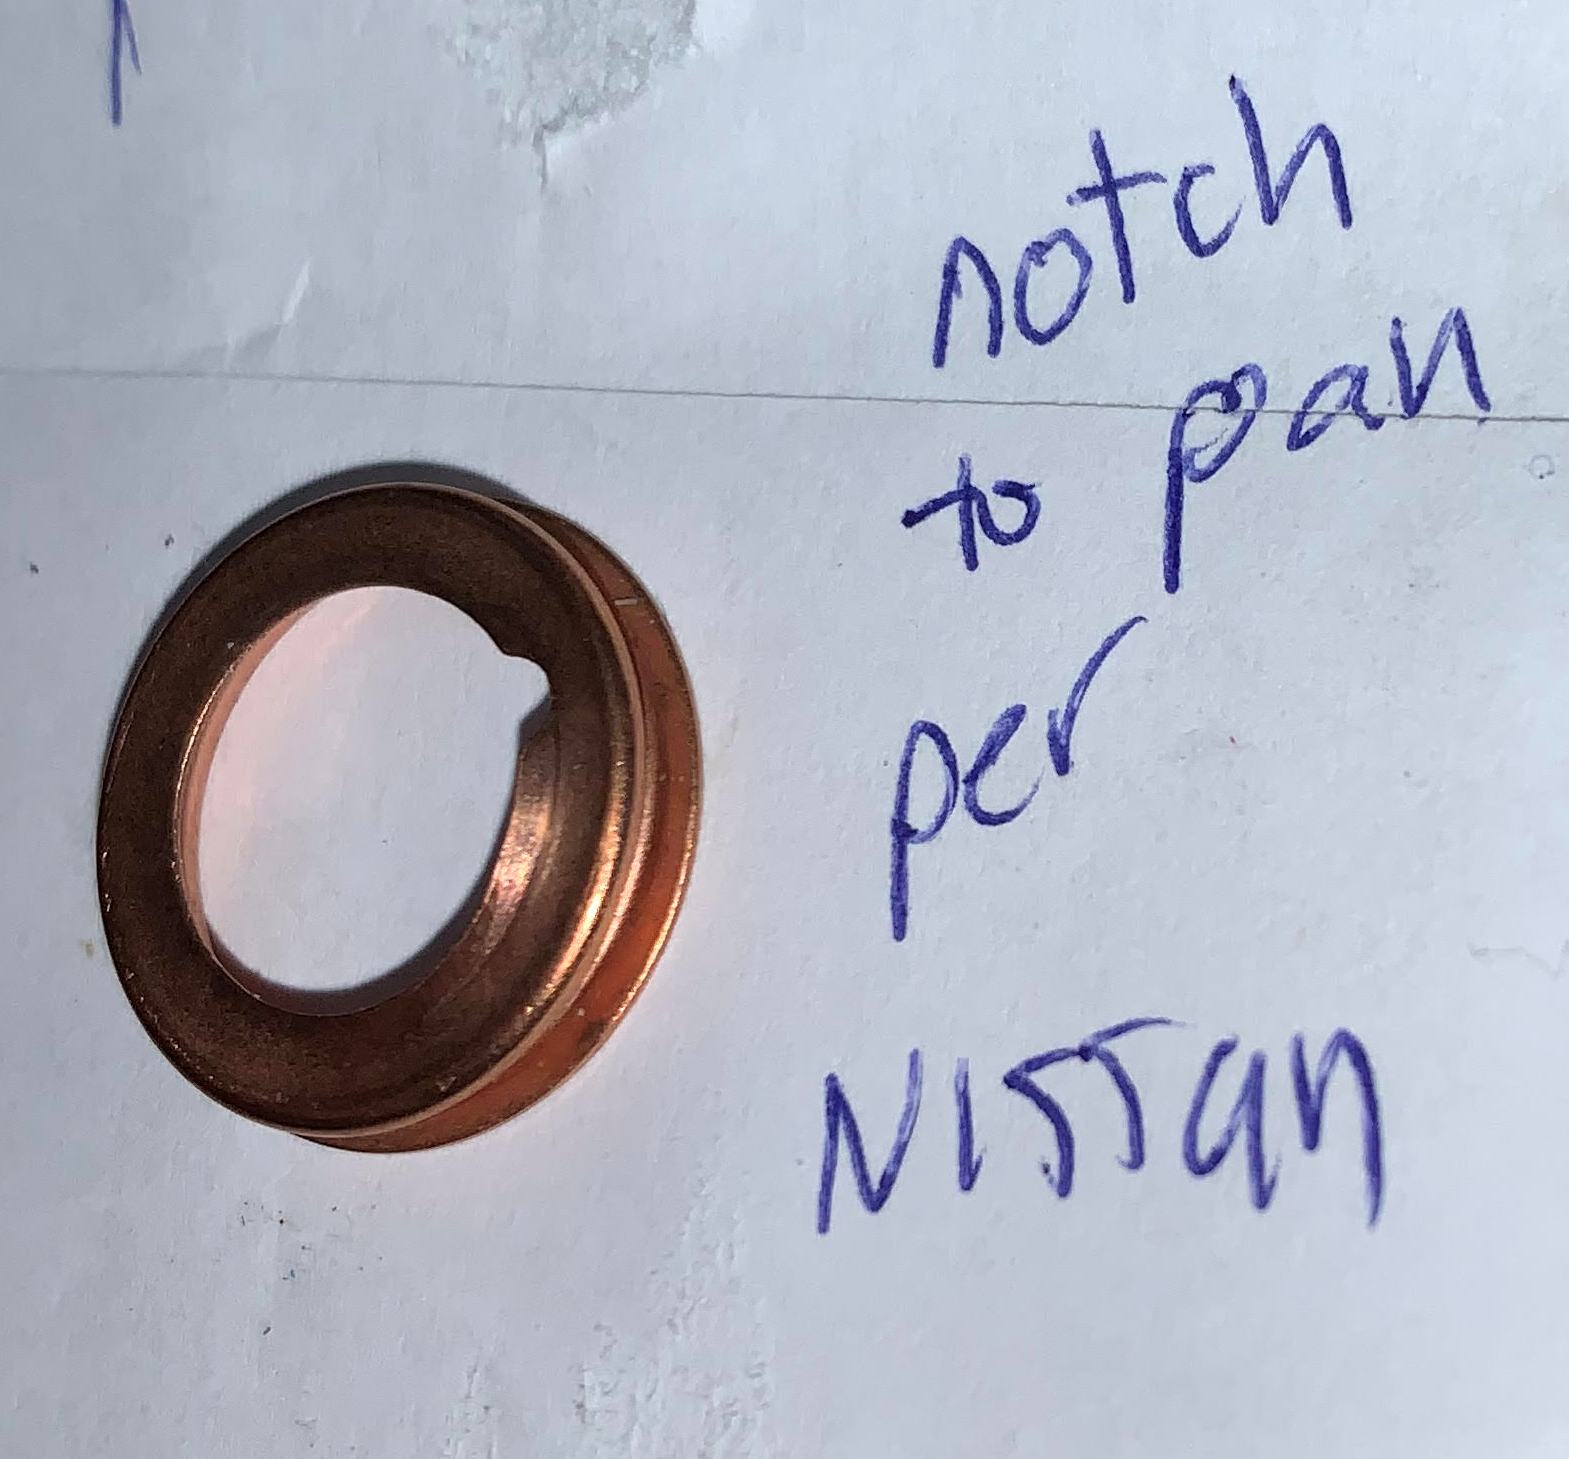 notch
to pan
per
Nissan